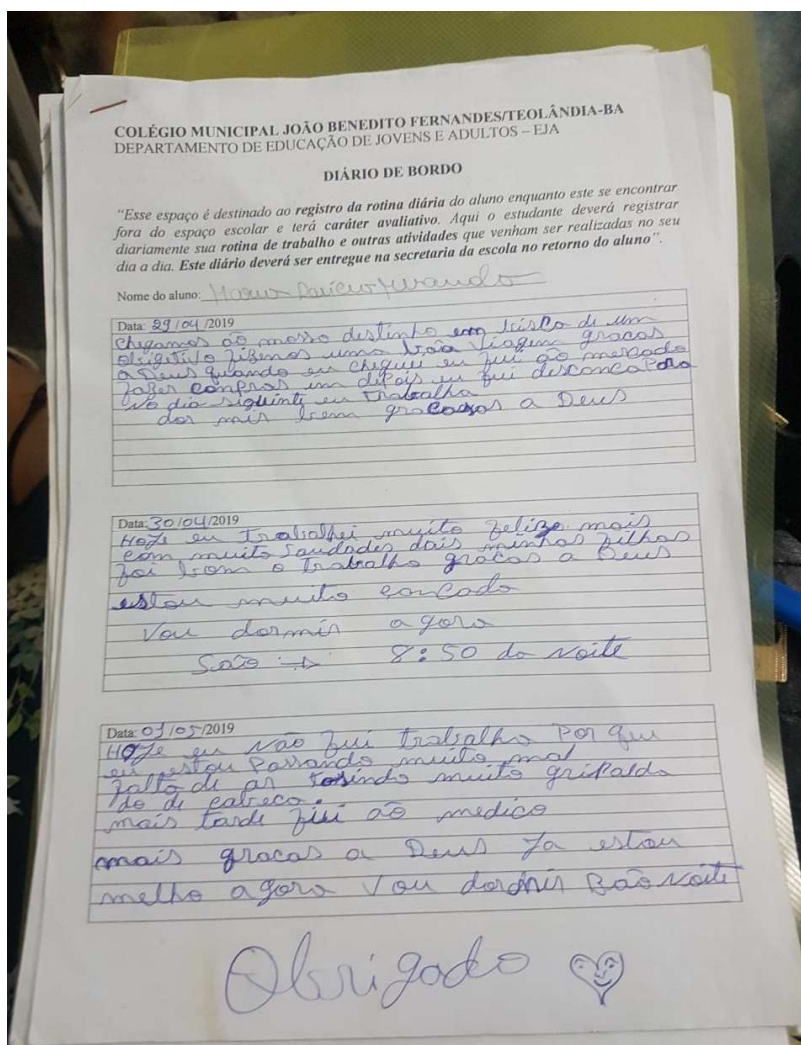 COLÉGIO MUNICIPAL JOÃO BENEDITO FERNANDES/TEOLÂNDIA-BA
DEPARTAMENTO DE EDUCAÇÃO DE JOVENS E ADULTOS – EJA
DIÁRIO DE BORDO
"Esse espaço é destinado ao registro da rotina diária do aluno enquanto este se encontrar
fora do espaço escolar e terá caráter avaliativo. Aqui o estudante deverá registrar
diariamente sua rotina de trabalho e outras atividades que venham ser realizadas no seu
dia a dia. Este diário deverá ser entregue na secretaria da escola no retorno do aluno".
Nome do aluno:
Data: 29/04/2019
chegamos ão nosso destinho em de um
fizemos uma bôa viagem gracas
a Deus quando eu cheguei eu fui ão mercado
fazer conpras im dipois eu fui discanca Para
No dia siguinte eu trabalha
dor mir bem gracas a Deus
Data: 30/04/2019
HoJe eu Trabalhei muito felizo mais
com muito saudades dais minhas filhas
foi bom o trabalho gracas a Deus
estou muito concado
Vou dormir agora
São → 8:50 da Noite
Data: 01/05/2019
HOJe eu Não fui trabalho Por que
eu estou Passando muito mal
falto de ar tosindo muito gripaldo
do de cabeca.
mais tarde fui ão medico
mais gracas a Deus Ja estou
melho agora Vou dordmir Bão Noite
Obrigado